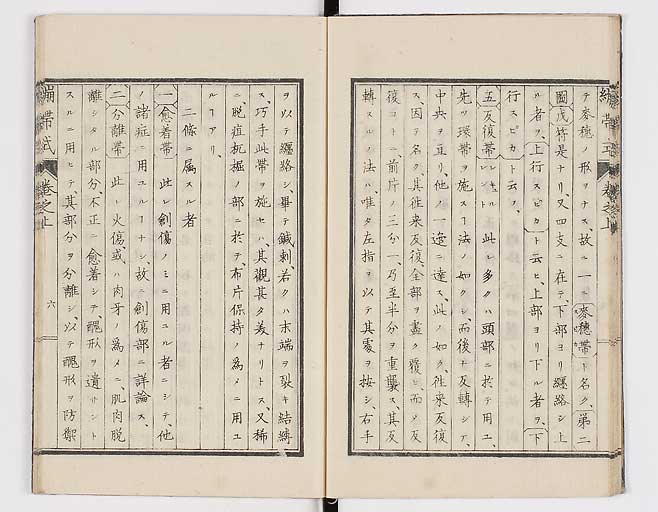 テ麥穗ノ形ヲナス、故ニ一ニ麥穗帶ト名ク、第二
圖戊符是ナリ、又四支ニ在テ、下部ヨリ纏絡シ上
ル者ヲ、上行スピカト云ヒ、上部ヨリ下ル者ヲ、下
行スピカト云フ、
五反復帶 此レ多クハ頭部ニ於テ用ユ、
先ツ環帶ヲ施スㇿ法ノ如クシ、而後チ反轉シテ、
中央ヲ亘リ、他ノ一邊ニ達ス、此ノ如ク、徃來反復
ス、因テ名ク、其徃來反復、全部ヲ盡ク覆ヒ、而メ反
復コトニ、前片ノ三分一、乃至半分ヲ重襲ス、其反
轉スルノ法ハ、唯タ左指ヲ以テ其處ヲ按シ、右手
ヲ以テ纏絡シ、畢テ鍼刺、若クハ末端ヲ裂キ結縛
ス、巧手此帶ヲ施セハ、其觀甚タ美ナリトス、又稀
ニ、脱疽ノ部ニ於テ、布片保持ノ爲メニ用ユ
ルアリ、
二條ニ属スル者
一愈着帶 此レ創傷ノミニ用ユル者ニシテ、他
ノ諸症ニ用ユルナシ、故ニ創傷部ニ詳論ス、
二分離帶 此レ火傷、或ハ肉牙ノ爲メニ、肌肉脱
離シタル部分、不正ニ愈着シテ、醜形ヲ遺サント
スルニ用ヒテ、其部分ヲ分離シ、以テ醜形ヲ防禦
繃帶式 卷之上
六